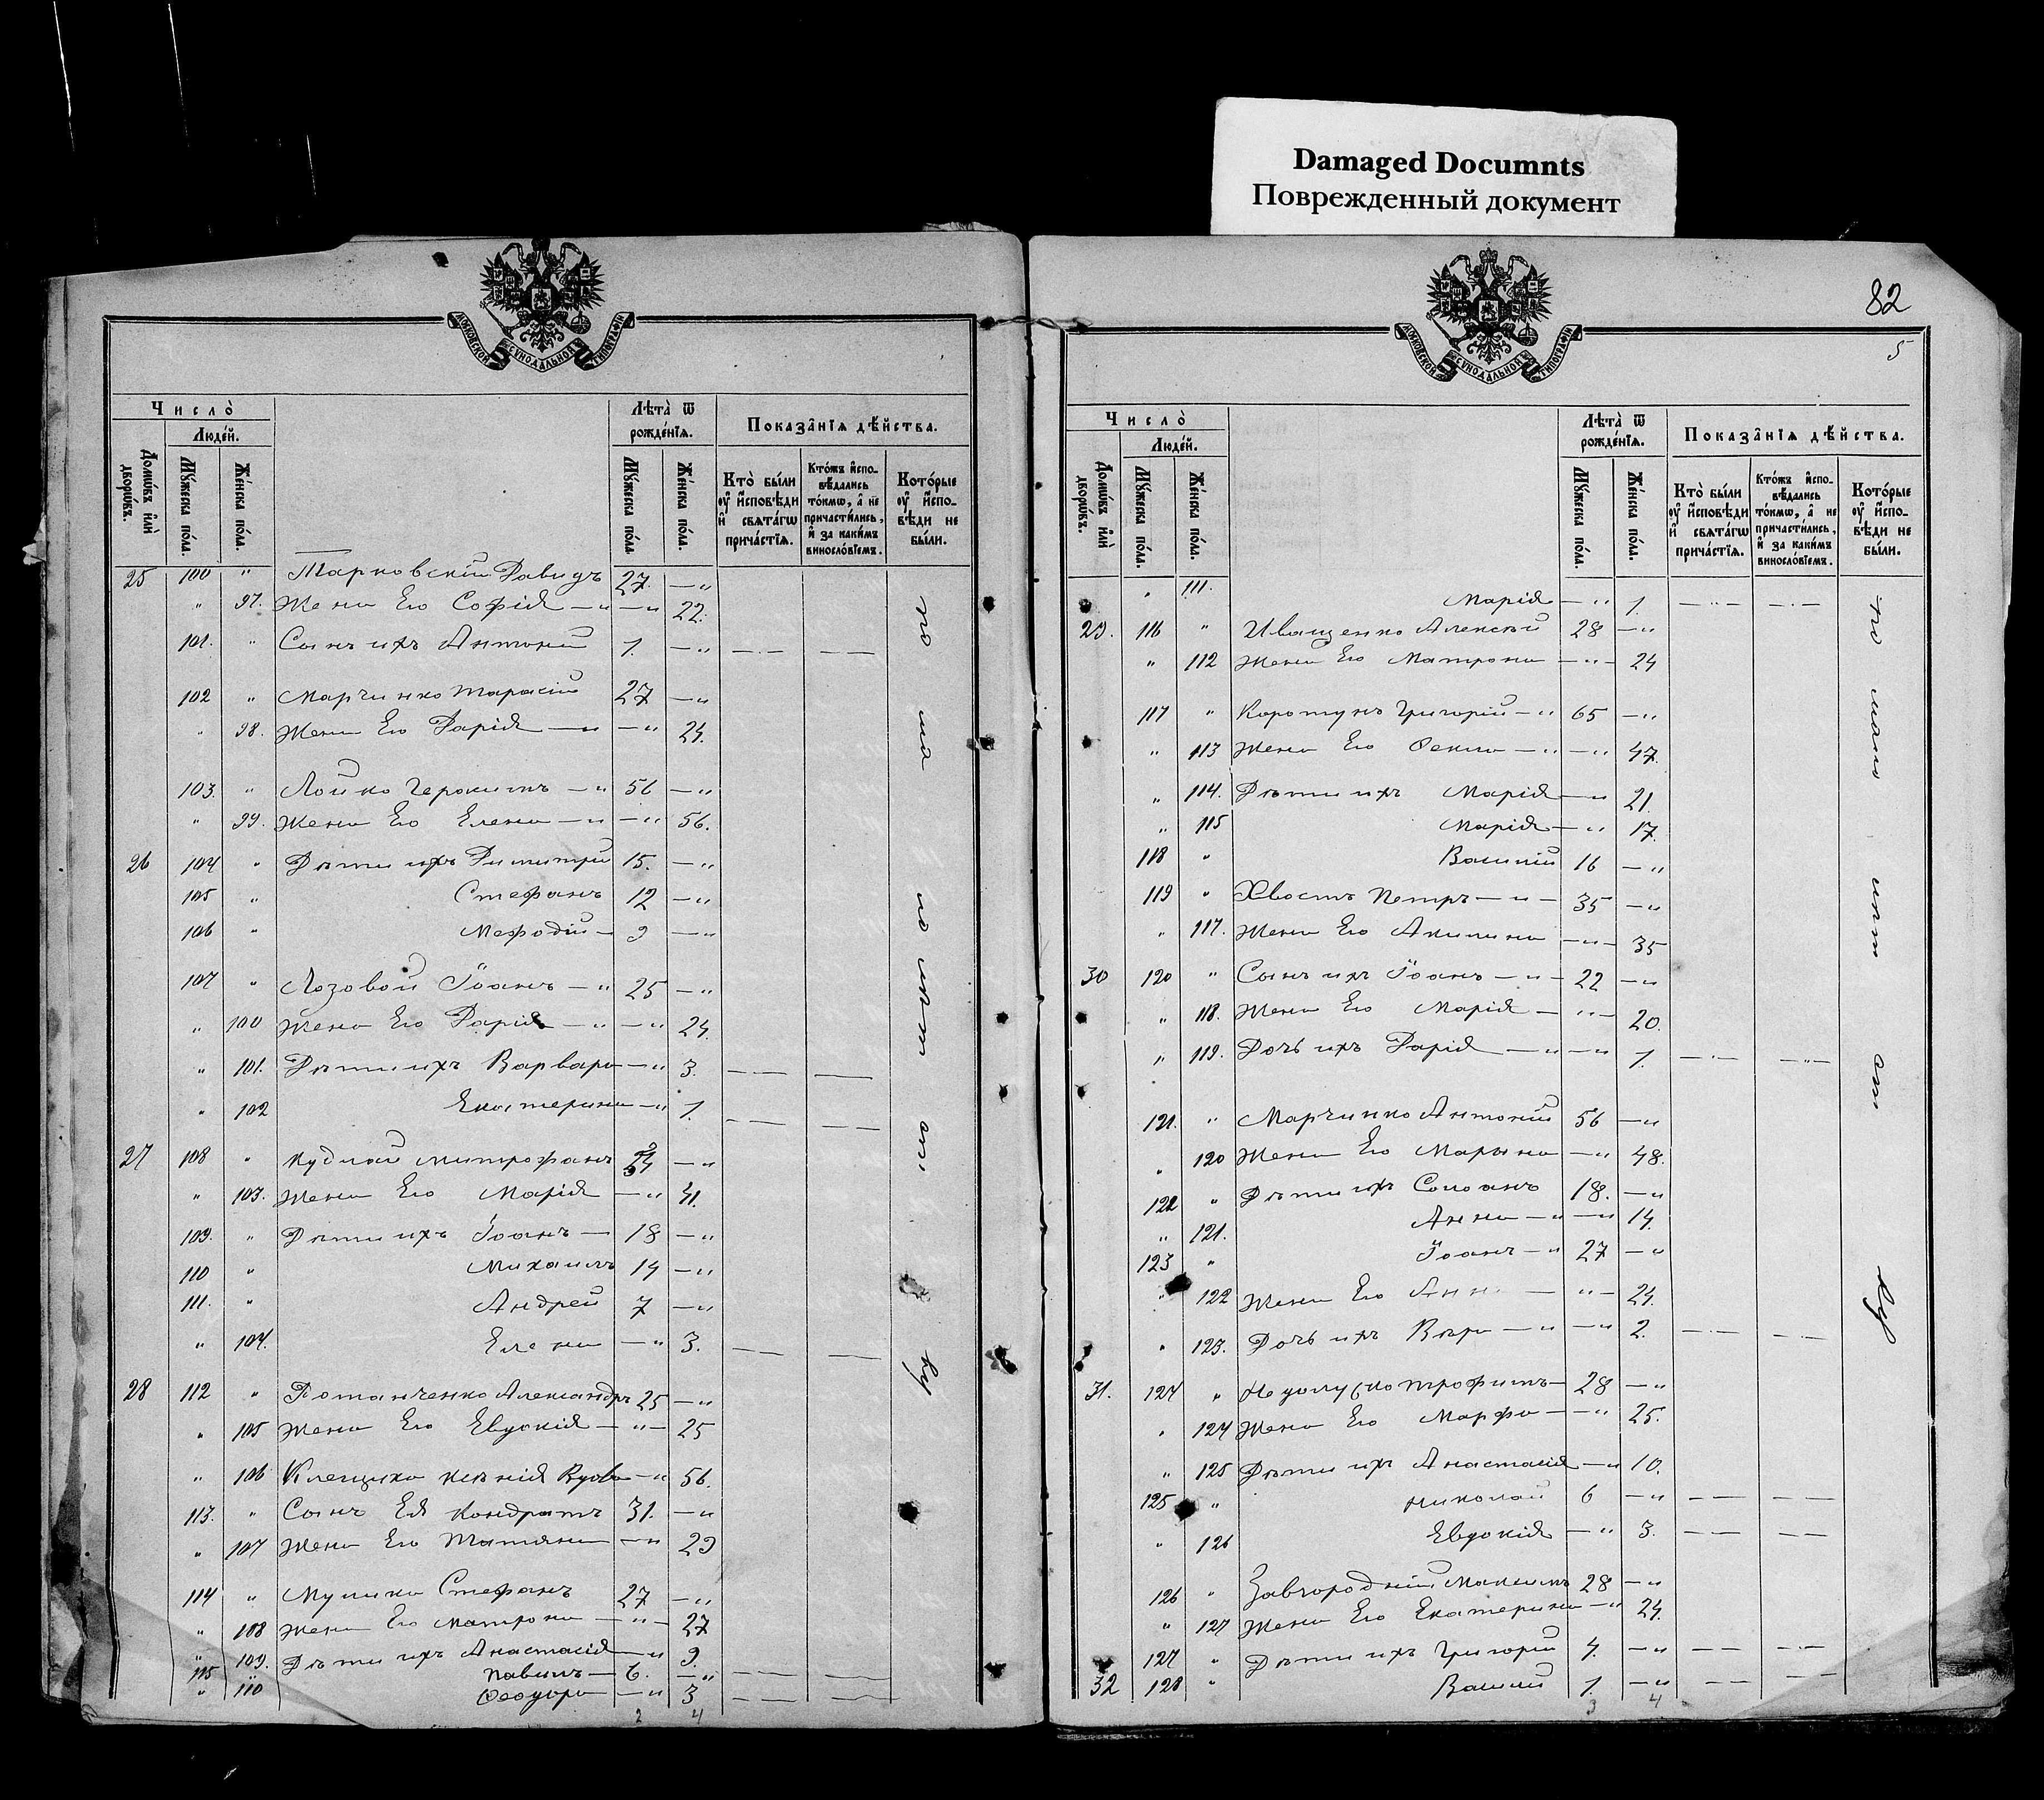 Damaged Documnts
Поврежденный документ
МОСКОВСКОЙ СѴНОДАЛЬНОЙ ТИПОГРАФІИ
Число̀
Людей.
Домѡвъ илѝ дворѡвъ.
Мꙋжеска пола.
Женска пола.
Лѣта̀ ѿ рожденїѧ.
Мꙋжеска пола.
Женска пола.
Показанїѧ дѣйства.
Кто̀ были ᲂу̓ исповѣди и свѧтагѡ причастїѧ.
Ктожъ исповѣдались токмѡ, а не причастились, и за какимъ винословїемъ.
Которые ᲂу̓ исповѣди не были.
25 100 " Тарковскій Давидъ 27. — "
" 97. Жена Его Софія — " — " 22.
101. " Сынъ ихъ Антоній 1. — "
102 " Марченко Тарасій 27 — "
" 98. Жена Его Дарія — " — " 24.
103. " Лойко Герасимъ — " 56 — "
" 99. Жена Его Елена — " — " 56.
26 104 " Дѣти ихъ Димитрій 15. — "
105 " Стефанъ 12 — "
106 " Мефодій — 9 — "
107 " Лозовой Іоанъ — " 25 — "
" 100 Жена Его Дарія — " — " 24.
" 101. Дѣти ихъ Варвара — " 3.
" 102 Екатерина — " 1.
27 108 " Кудлай Митрофанъ — "
" 103. Жена Его Марія — " 41.
109. " Дѣти ихъ Іоанъ — 18 — "
110 " Михаилъ 14 — "
111. " Андрей 7 — "
" 104. Елена — " 3.
28 112 " Потапченко Александръ 25 — "
" 105 Жена Его Евдокія — " — 25
" 106 Ксенія Вдова — " 56.
113. " Сынъ Ея Кондратъ 31. — "
" 107 Жена Его Татіяна — " 29
114 " Стефанъ 27 — "
" 108 Жена Его Матрона — " — 27
" 109. Дѣти ихъ Анастасія — " 9.
115 " Павелъ — 6. — "
" 110 Феодора — " 3
2 4
82
5
МОСКОВСКОЙ СѴНОДАЛЬНОЙ ТИПОГРАФІИ
Число̀
Людей.
Домѡвъ илѝ дворѡвъ.
Мꙋжеска пола.
Женска пола.
Лѣта̀ ѿ рожденїѧ.
Мꙋжеска пола.
Женска пола.
Показанїѧ дѣйства.
Кто̀ были ᲂу̓ исповѣди и свѧтагѡ причастїѧ.
Ктожъ исповѣдались токмѡ, а не причастились, и за какимъ винословїемъ.
Которые ᲂу̓ исповѣди не были.
" 111. Марія — " 1.
29. 116 " Иващенко Алексій 28 — "
" 112 Жена Его Матрона — " — 24
117 " Коротунъ Григорій — " 65 — "
" 113 Жена Его Фекла — " — " 47.
" 114. Дѣти ихъ Марія — " 21.
" 115 Марія — " 17.
118 " Василій 16 — "
119 " Хвостъ Петръ — " — 35 — "
" 117. Жена Его Акилина — " — 35
30 120 " Сынъ ихъ Іоанъ — " — 22 — "
" 118. Жена Его Марія — " — 20.
" 119. Дочь ихъ Дарія — " — " 1.
121. " Марченко Антоній 56 — "
" 120 Жена Его Марина — " 48.
122 " Дѣти ихъ 18. — "
" 121. Анна — " — " 14.
123 " Іоанъ — " 27 — "
" 122 Жена Его Анна — " — 24.
" 123. Дочь ихъ Вѣра — " — " 2.
31. 124 " Трофимъ — 28 — "
" 124 Жена Его Марфа — — " 25.
" 125 Дѣти ихъ Анастасія — " 10.
125 " Николай 6 — "
" 126 Евдокія — " 3.
126 " Завгородній Максимъ 28 — "
" 127 Жена Его Екатерина — " 24.
127 " Дѣти ихъ Григорій 4. — "
32 128 " Василій 1. — "
3 4